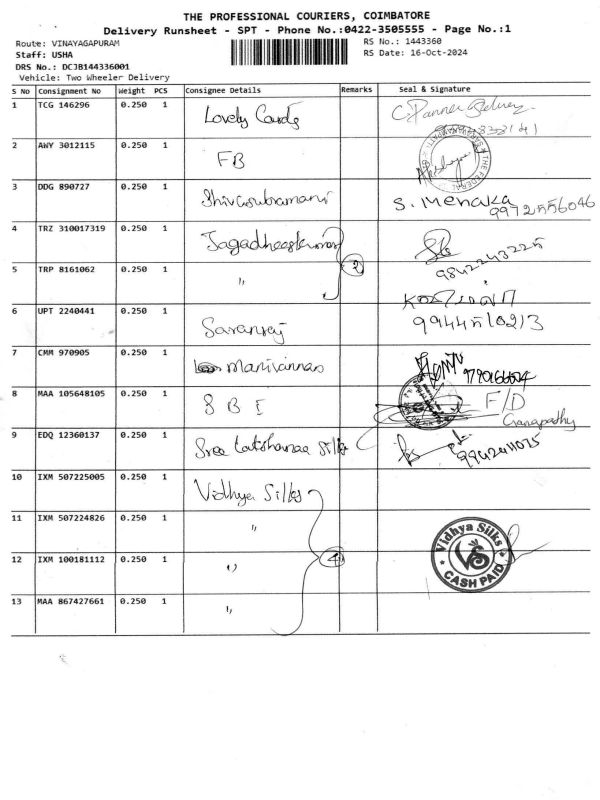 THE PROFESSIONAL COURIERS, COIMBATORE
Delivery Runsheet - SPT - Phone No.:0422-3505555 - Page No.:1
Route: VINAYAGAPURAM RS No.: 1443360
Staff: USHA RS Date: 16-Oct-2024
DRS No.: DCJB144336001
Vehicle: Two Wheeler Delivery
S No Consignment No Weight PCS Consignee Details Remarks Seal & Signature
1 TCG 146296 0.250 1 Lovely Cards
2 AWY 3012115 0.250 1 FB THE FEDERAL
3 DDG 890727 0.250 1 Shivasubramani S. Menaka
9972556046
4 TRZ 310017319 0.250 1 9842243225
5 TRP 8161062 0.250 1 " 2
6 UPT 2240441 0.250 1 Saranraj
7 CMM 970905 0.250 1 Manivannan
8 MAA 105648105 0.250 1 SBI F/D
Ganapathy
9 EDQ 12360137 0.250 1 Sree Silks
10 IXM 507225005 0.250 1 Vidhya Silks
11 IXM 507224826 0.250 1 " Vidhya Silks
VS
12 IXM 100181112 0.250 1 " 4 CASH PAID
13 MAA 867427661 0.250 1 "